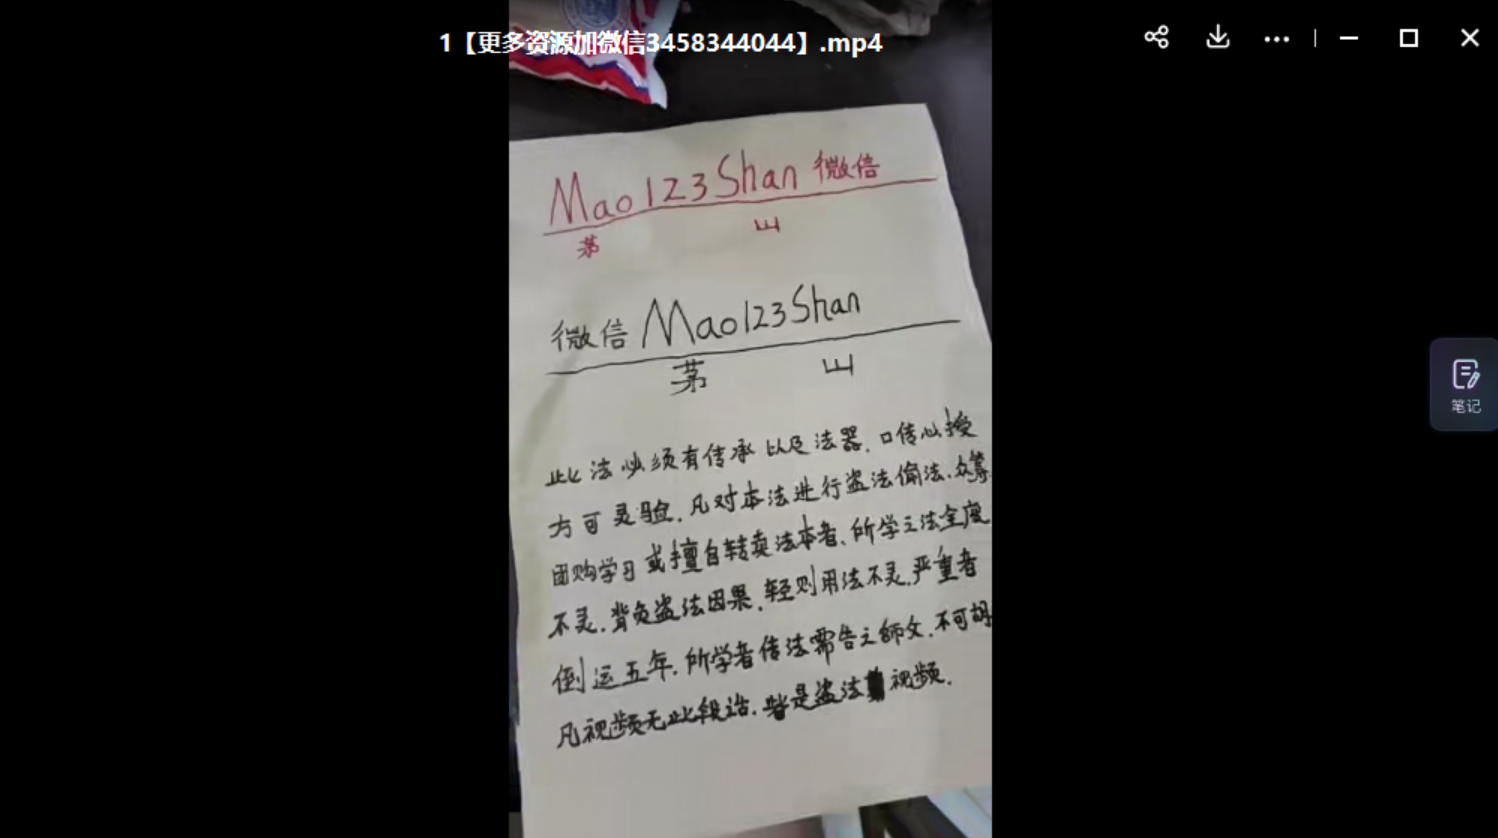 1【更多资源加微信3458344044】.mp4
Mao123Shan 微信
茅 山
微信 Mao123Shan
茅 山
此法必须有传承以及法器.口传心授
方可灵验.凡对本法进行盗法偷法.众筹
团购学习或擅自转卖法本者.所学之法全废
不灵.背负盗法因果.轻则用法不灵.严重者
倒运五年.所学者传法需告之師父.不可胡
凡视频无此段话.皆是盗法视频.
笔记